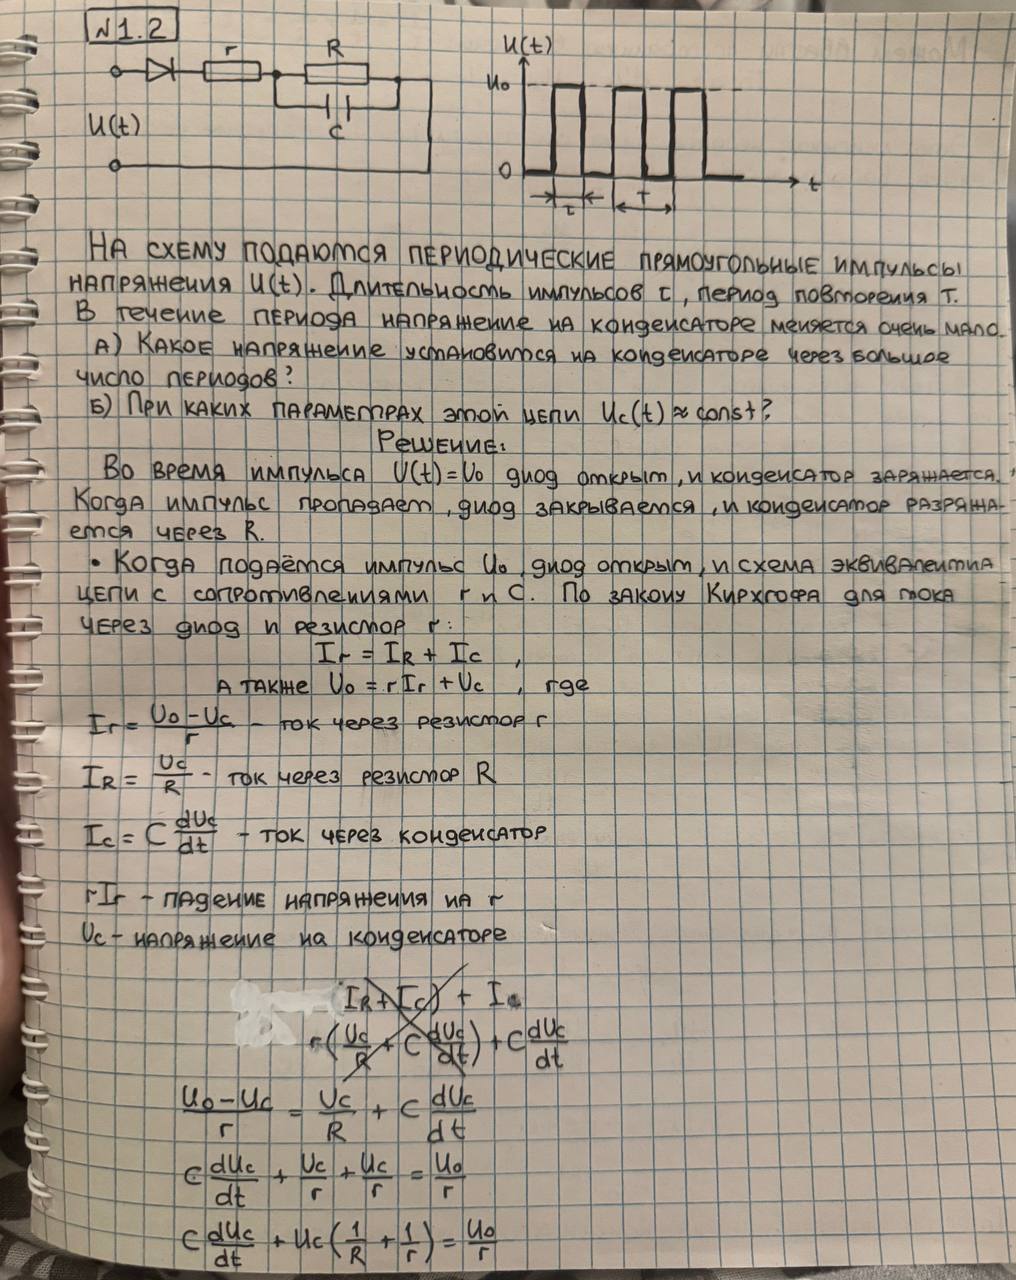 №1.2
r
R
C
U(t)
U(t)
U₀
0
τ
T
t
На схему подаются периодические прямоугольные импульсы
напряжения U(t). Длительность импульсов τ, период повторения T.
В течение периода напряжение на конденсаторе меняется очень мало.
А) Какое напряжение установится на конденсаторе через большое
число периодов?
Б) При каких параметрах этой цепи Uc(t) ≈ const?
Решение:
Во время импульса U(t)=U₀ диод открыт, и конденсатор заряжается.
Когда импульс пропадает, диод закрывается, и конденсатор разряжа-
ется через R.
• Когда подаётся импульс U₀, диод открыт, и схема эквивалентна
цепи с сопротивлениями r и C. По закону Кирхгофа для тока
через диод и резистор r:
Ir = IR + Ic ,
а также U₀ = rIr + Uc , где
Ir = (U₀ - Uc)/r - ток через резистор r
IR = Uc/R - ток через резистор R
Ic = C dUc/dt - ток через конденсатор
rIr - падение напряжения на r
Uc - напряжение на конденсаторе
(IR + Ic) + Ic
r(Uc/R + C dUc/dt) + C dUc/dt
(U₀ - Uc)/r = Uc/R + C dUc/dt
C dUc/dt + Uc/r + Uc/r = U₀/r
C dUc/dt + Uc(1/R + 1/r) = U₀/r